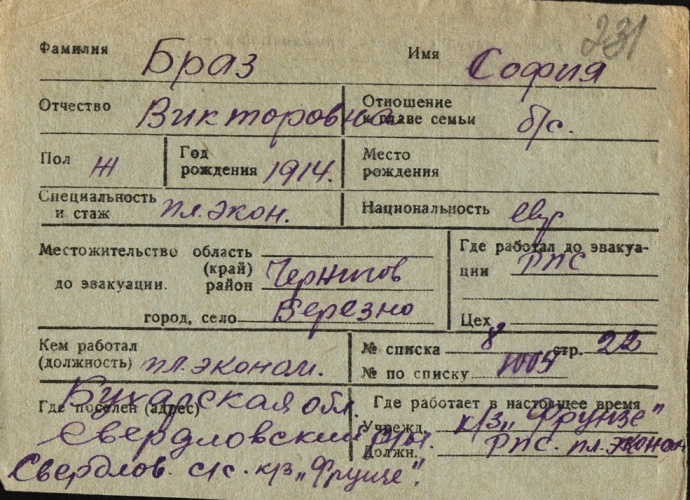 231
Фамилия Браз Имя София
Отчество Викторовна Отношение к главе семьи б/с.
Пол Ж Год рождения 1914. Место рождения
Специальность и стаж пл. экон. Национальность евр
Местожительство до эвакуации. область (край)
район Чернигов
город, село Березно
Где работал до эвакуации РПС
Цех
Кем работал (должность) пл. эконом. № списка 8 стр. 22
№ по списку 1005
Где поселен (адрес) Бухарская обл.
Свердловский
Свердлов. с/с. к/з „Фрунзе".
Где работает в настоящее время
Учрежд. к/з „Фрунзе"
Должн. РПС. пл. эконом